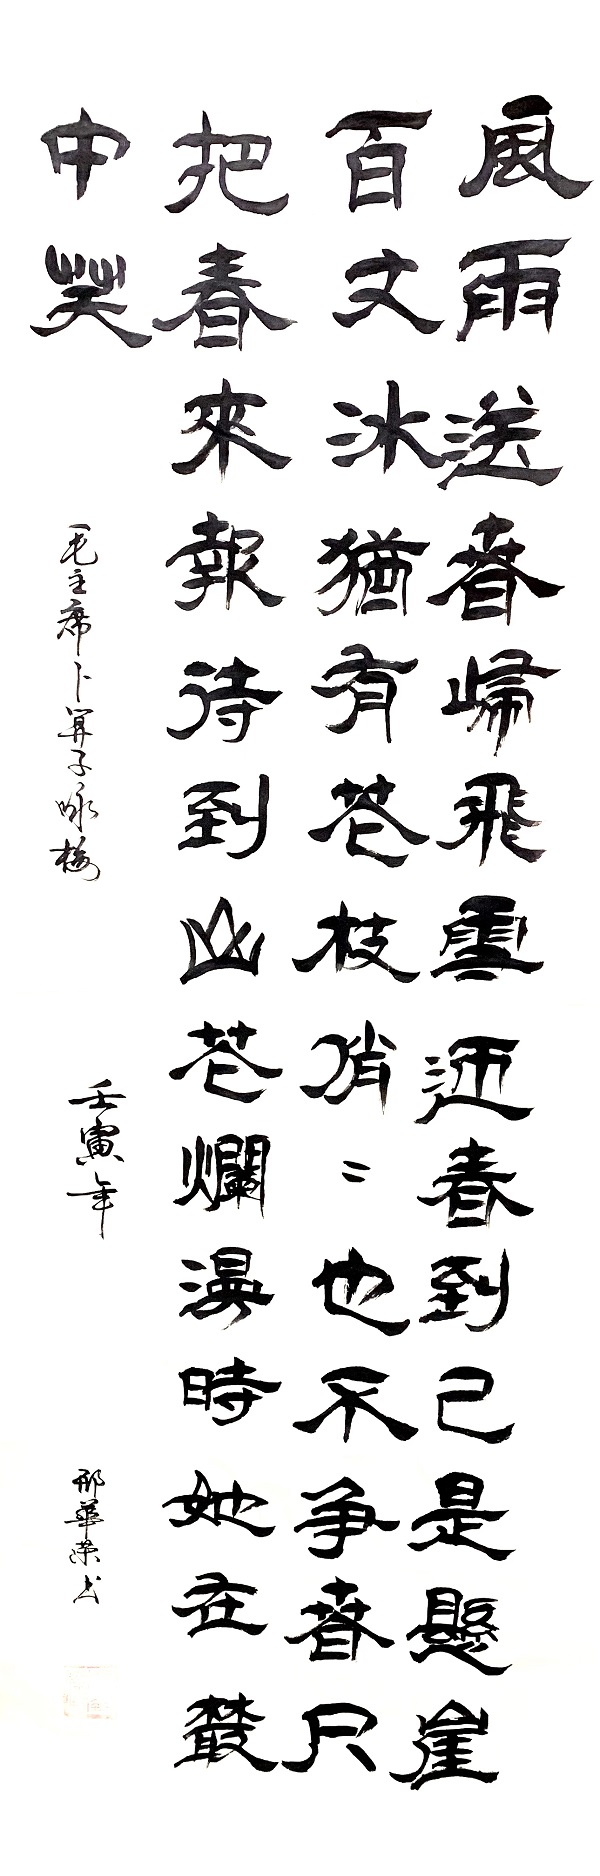 風雨送春歸飛雪迎春到已是懸崖
百丈冰猶有花枝俏〻也不争春只
把春來報待到山花爛漫時她在叢
中笑
毛主席卜算子咏梅
壬寅年
邢華荣书